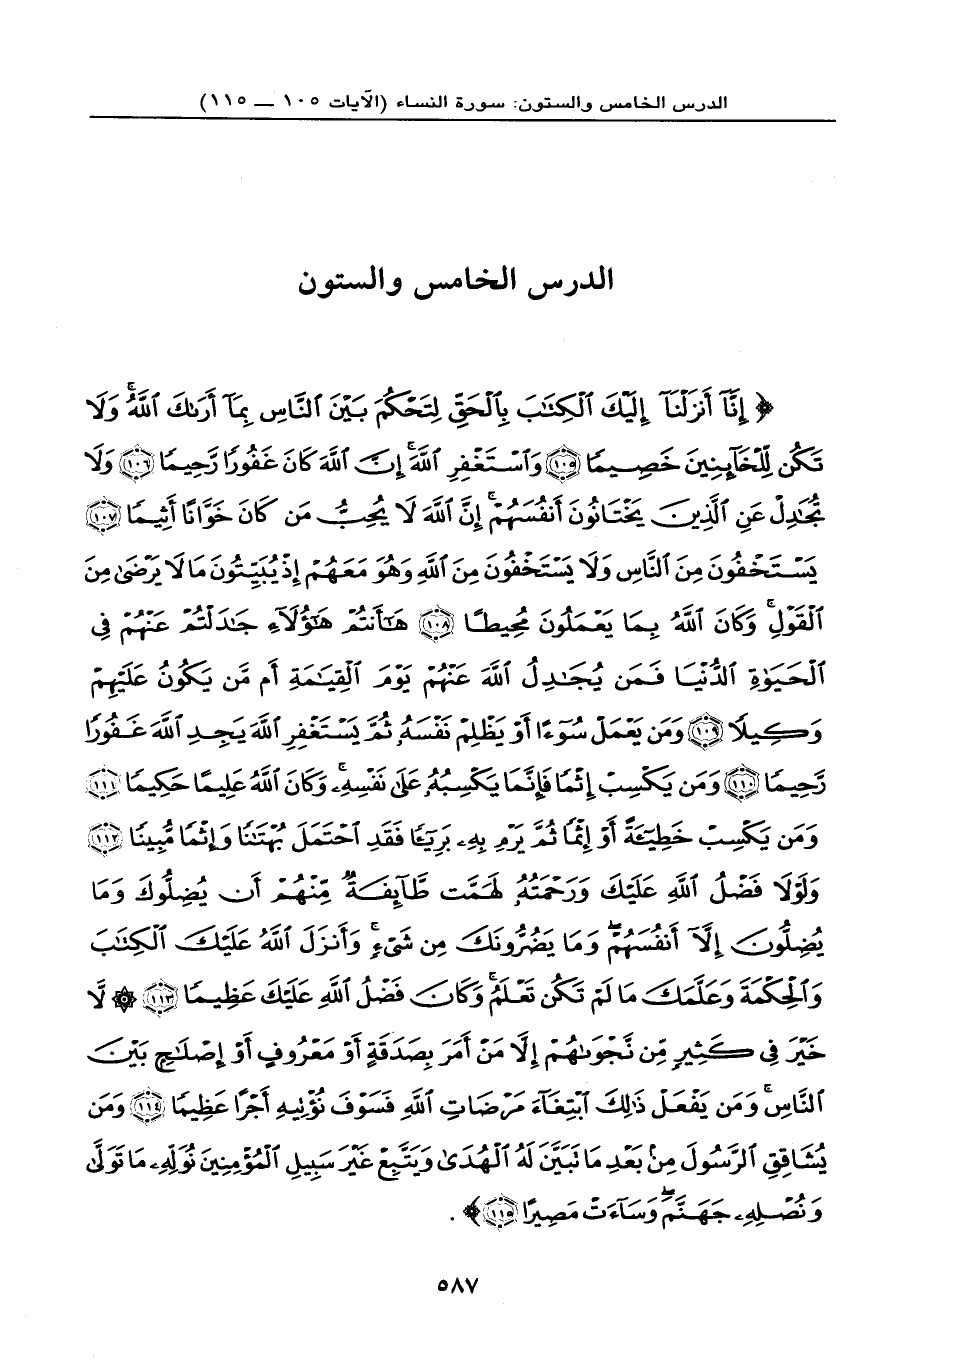 الدرس الخامس والستون: سورة النساء (الآيات ١٠٥ — ١١٥)
الدرس الخامس والستون
﴿ إِنَّآ أَنزَلْنَآ إِلَيْكَ ٱلْكِتَٰبَ بِٱلْحَقِّ لِتَحْكُمَ بَيْنَ ٱلنَّاسِ بِمَآ أَرَىٰكَ ٱللَّهُ ۚ وَلَا
تَكُن لِّلْخَآئِنِينَ خَصِيمًا ﴿١٠٥﴾ وَٱسْتَغْفِرِ ٱللَّهَ ۖ إِنَّ ٱللَّهَ كَانَ غَفُورًا رَّحِيمًا ﴿١٠٦﴾ وَلَا
تُجَٰدِلْ عَنِ ٱلَّذِينَ يَخْتَانُونَ أَنفُسَهُمْ ۚ إِنَّ ٱللَّهَ لَا يُحِبُّ مَن كَانَ خَوَّانًا أَثِيمًا ﴿١٠٧﴾
يَسْتَخْفُونَ مِنَ ٱلنَّاسِ وَلَا يَسْتَخْفُونَ مِنَ ٱللَّهِ وَهُوَ مَعَهُمْ إِذْ يُبَيِّتُونَ مَا لَا يَرْضَىٰ مِنَ
ٱلْقَوْلِ ۚ وَكَانَ ٱللَّهُ بِمَا يَعْمَلُونَ مُحِيطًا ﴿١٠٨﴾ هَٰٓأَنتُمْ هَٰٓؤُلَآءِ جَٰدَلْتُمْ عَنْهُمْ فِى
ٱلْحَيَوٰةِ ٱلدُّنْيَا فَمَن يُجَٰدِلُ ٱللَّهَ عَنْهُمْ يَوْمَ ٱلْقِيَٰمَةِ أَم مَّن يَكُونُ عَلَيْهِمْ
وَكِيلًا ﴿١٠٩﴾ وَمَن يَعْمَلْ سُوٓءًا أَوْ يَظْلِمْ نَفْسَهُۥ ثُمَّ يَسْتَغْفِرِ ٱللَّهَ يَجِدِ ٱللَّهَ غَفُورًا
رَّحِيمًا ﴿١١٠﴾ وَمَن يَكْسِبْ إِثْمًا فَإِنَّمَا يَكْسِبُهُۥ عَلَىٰ نَفْسِهِۦ ۚ وَكَانَ ٱللَّهُ عَلِيمًا حَكِيمًا ﴿١١١﴾
وَمَن يَكْسِبْ خَطِيٓـَٔةً أَوْ إِثْمًا ثُمَّ يَرْمِ بِهِۦ بَرِيٓـًٔا فَقَدِ ٱحْتَمَلَ بُهْتَٰنًا وَإِثْمًا مُّبِينًا ﴿١١٢﴾
وَلَوْلَا فَضْلُ ٱللَّهِ عَلَيْكَ وَرَحْمَتُهُۥ لَهَمَّت طَّآئِفَةٌ مِّنْهُمْ أَن يُضِلُّوكَ وَمَا
يُضِلُّونَ إِلَّآ أَنفُسَهُمْ ۖ وَمَا يَضُرُّونَكَ مِن شَىْءٍ ۚ وَأَنزَلَ ٱللَّهُ عَلَيْكَ ٱلْكِتَٰبَ
وَٱلْحِكْمَةَ وَعَلَّمَكَ مَا لَمْ تَكُن تَعْلَمُ ۚ وَكَانَ فَضْلُ ٱللَّهِ عَلَيْكَ عَظِيمًا ﴿١١٣﴾ ۞ لَّا
خَيْرَ فِى كَثِيرٍ مِّن نَّجْوَىٰهُمْ إِلَّا مَنْ أَمَرَ بِصَدَقَةٍ أَوْ مَعْرُوفٍ أَوْ إِصْلَٰحٍۭ بَيْنَ
ٱلنَّاسِ ۚ وَمَن يَفْعَلْ ذَٰلِكَ ٱبْتِغَآءَ مَرْضَاتِ ٱللَّهِ فَسَوْفَ نُؤْتِيهِ أَجْرًا عَظِيمًا ﴿١١٤﴾ وَمَن
يُشَاقِقِ ٱلرَّسُولَ مِنۢ بَعْدِ مَا تَبَيَّنَ لَهُ ٱلْهُدَىٰ وَيَتَّبِعْ غَيْرَ سَبِيلِ ٱلْمُؤْمِنِينَ نُوَلِّهِۦ مَا تَوَلَّىٰ
وَنُصْلِهِۦ جَهَنَّمَ ۖ وَسَآءَتْ مَصِيرًا ﴿١١٥﴾ ﴾ .
٥٨٧